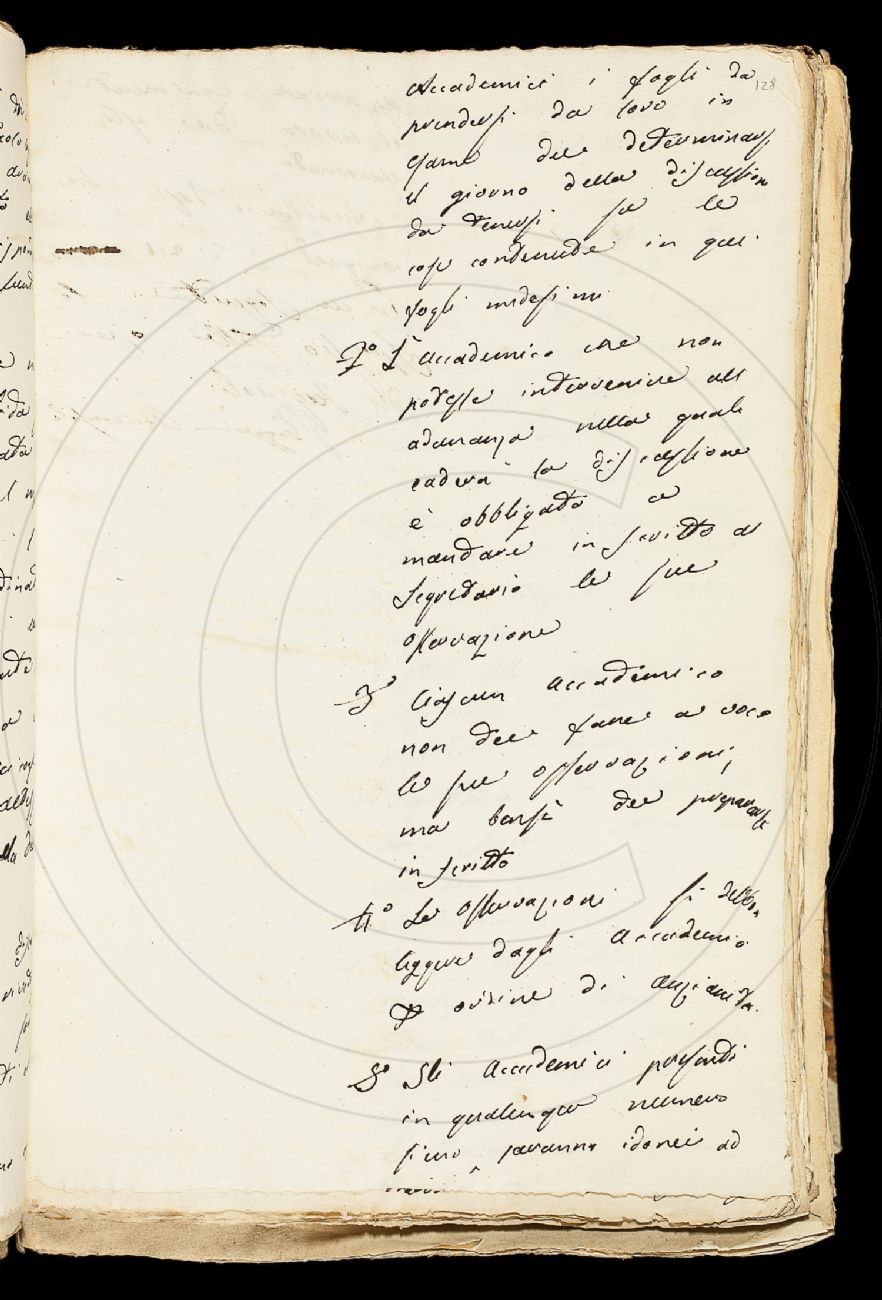 128
Accademici i fogli da
prendersi da loro in
esame dee determinarsi
il giorno della discussione
da tenersi su le
cose contenute in quei
fogli medesimi
2º L'Accademico che non
potesse intervenire all
adunanza nella quale
caderà la discussione
è obbligato a
mandare in scritto al
Segretario le sue
osservazione
3º Ciascun Accademico
non dee fare a voce
le sue osservazioni,
ma bensì dee prepararle
in scritto
4º Le osservazioni si debbon
leggere dagli Accademici
ordine di anzianità.
5º Gli Accademici presenti
in qualunque numero
sieno saranno idonei ad